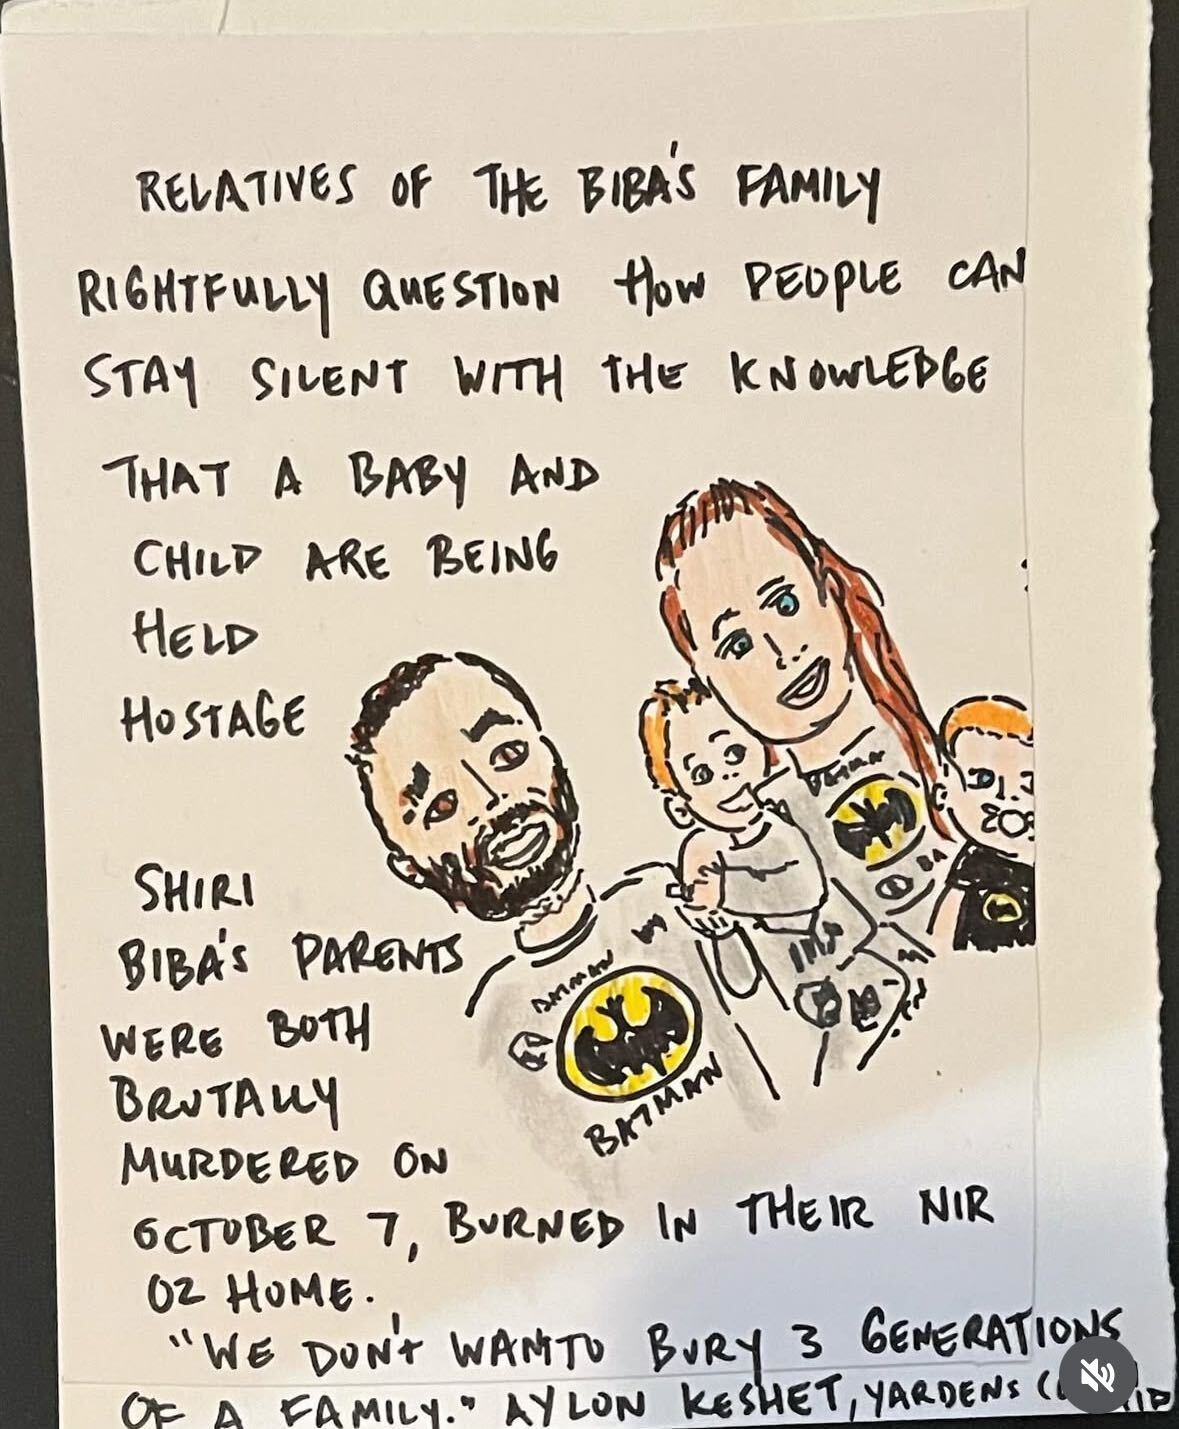 RELATIVES OF THE BIBA'S FAMILY
RIGHTFULLY QUESTION HOW PEOPLE CAN
STAY SILENT WITH THE KNOWLEDGE
THAT A BABY AND
CHILD ARE BEING
HELD
HOSTAGE
SHIRI
BIBA'S PARENTS
WERE BOTH
BRUTALLY
MURDERED ON
OCTOBER 7, BURNED IN THEIR NIR
OZ HOME.
"WE DON'T WANT TO BURY 3 GENERATIONS
OF A FAMILY." AYLON KESHET, YARDENS
BATMAN
BATMAN
BATMAN
BA